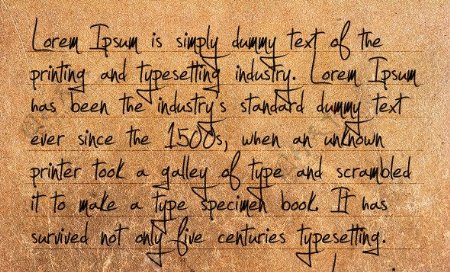 Lorem Ipsum is simply dummy text of the
printing and typesetting industry. Lorem Ipsum
has been the industry's standard dummy text
ever since the 1500s, when an unknown
printer took a galley of type and scrambled
it to make a type specimen book. It has
survived not only five centuries typesetting.